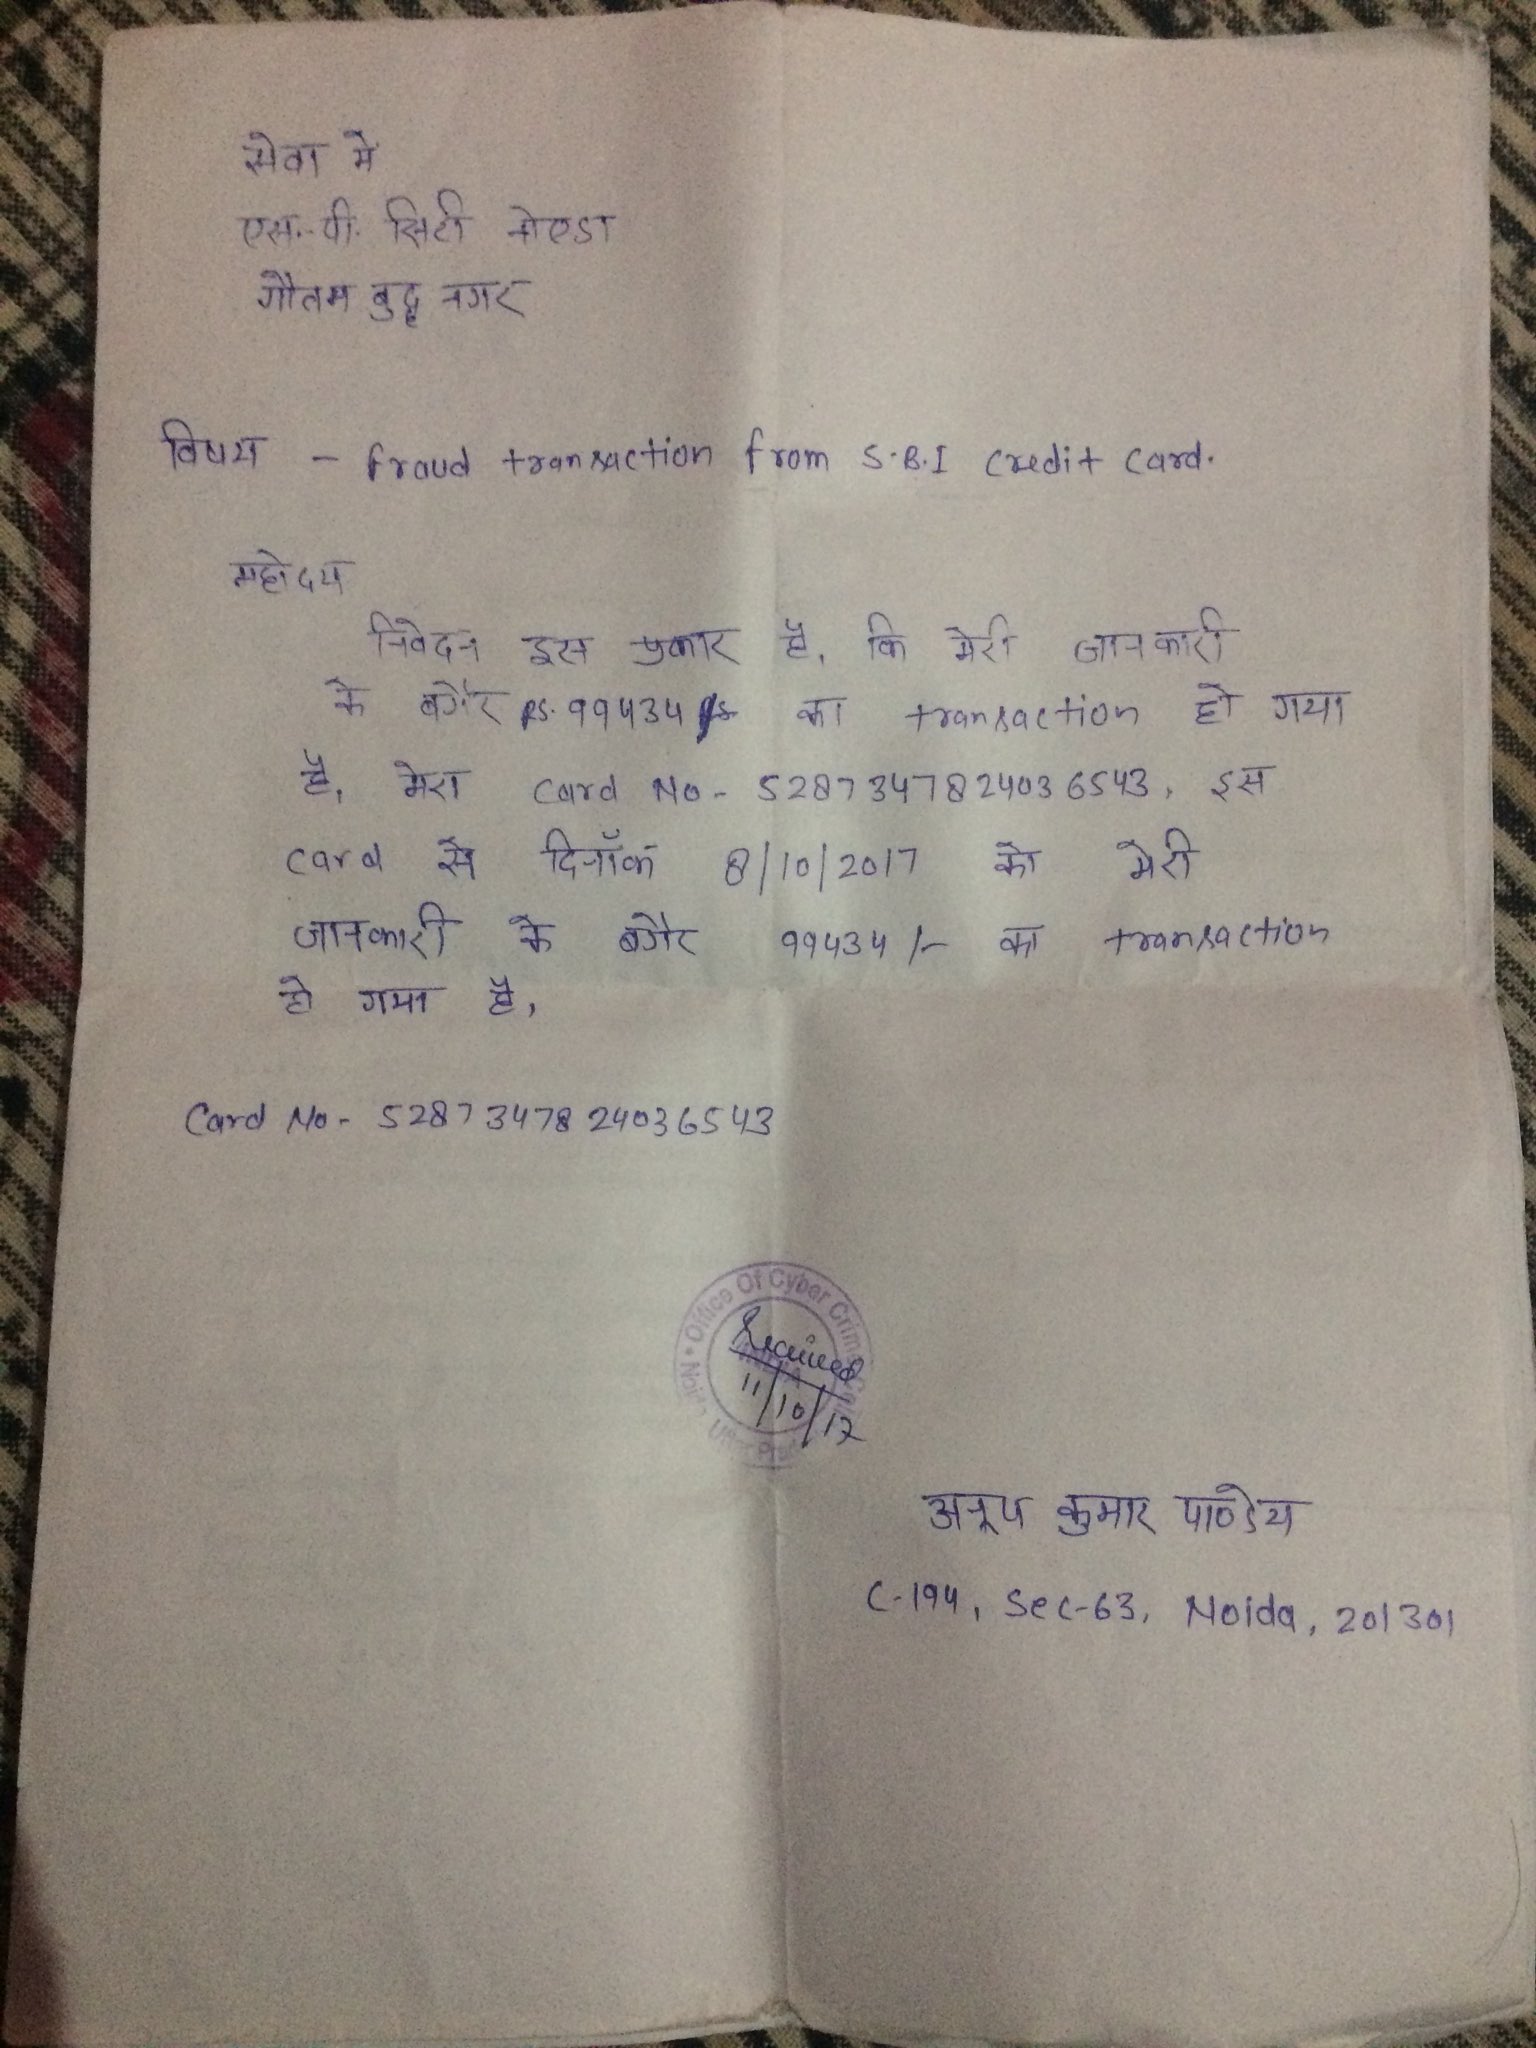 सेवा में
एस.पी. सिटी नोएडा
गौतम बुद्ध नगर
विषय - fraud transaction from S.B.I credit card.
महोदय
निवेदन इस प्रकार है, कि मेरी जानकारी
के बगैर RS. 99434 का transaction हो गया
है, मेरा card No- 5287347824036543, इस
card से दिनाँक 8/10/2017 को मेरी
जानकारी के बगैर 99434/- का transaction
हो गया है,
Card No- 5287347824036543
Office Of Cyber Crime
Received
11/10/17
अनूप कुमार पाण्डेय
C-194, Sec-63, Noida, 201301